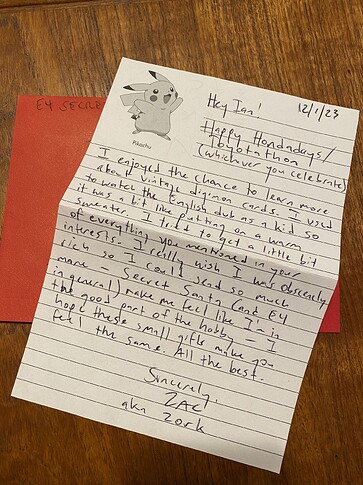 E4 SECRE
Pikachu
Hey Ian!
12/1/23
Happy Hondadays/
Toyotathon
(whichever you celebrate)
I enjoyed the chance to learn more
about vintage digimon cards. I used
to watch the English dub as a kid so
it was a bit like putting on a warm
sweater. I tried to get a little bit
of everything you mentioned in your
interests. I really wish I was obscenely
rich so I could send so much
more - Secret Santa (and E4
in general) make me feel like I'm in
the good part of the hobby - I
hope these small gifts make you
feel the same. All the best.
Sincerely,
ZAC
aka Zork